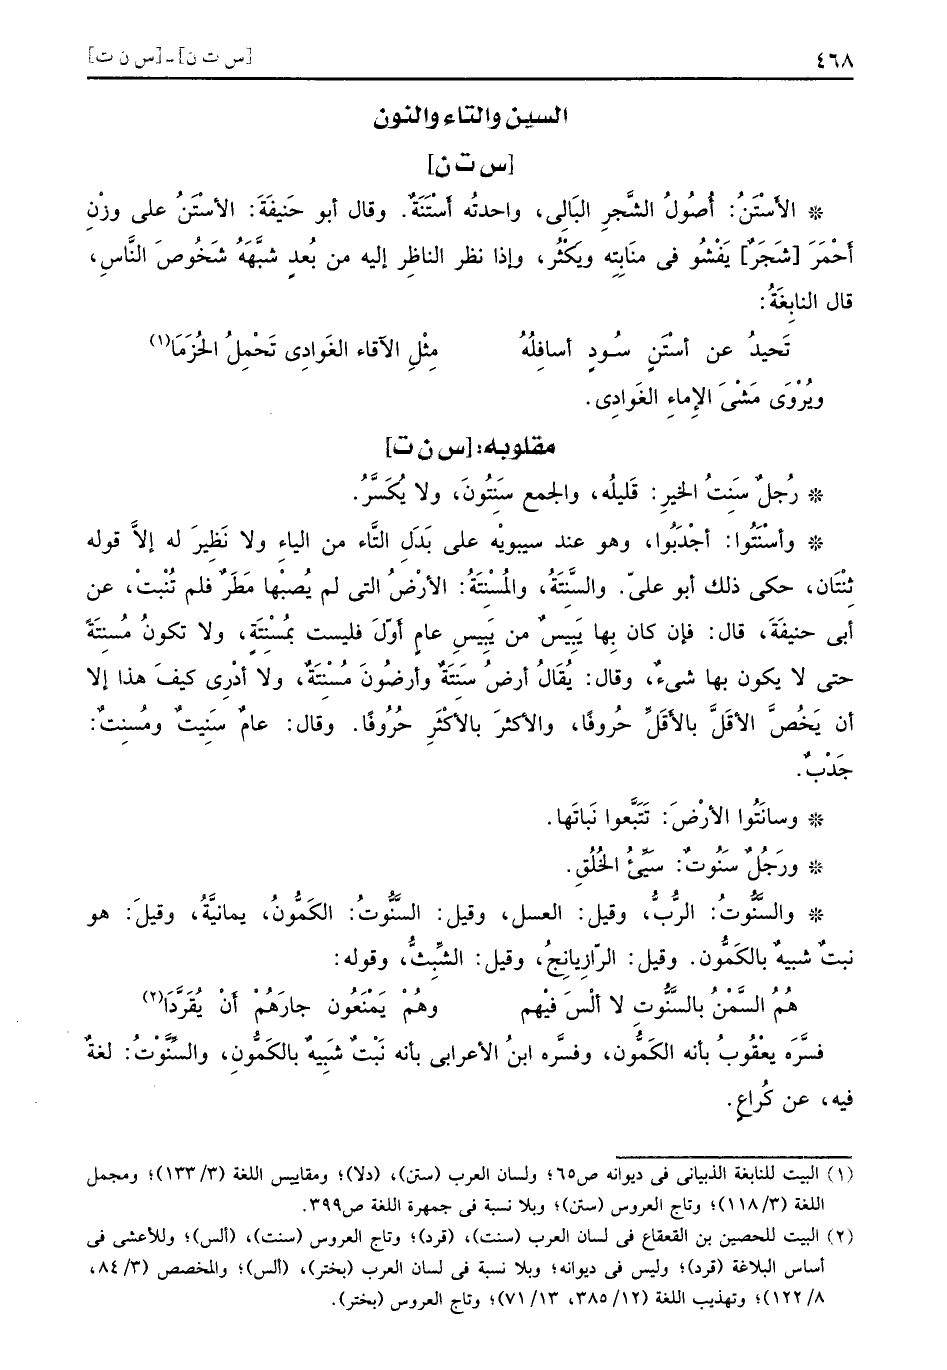 ٤٦٨ [س ت ن] ـ [س ن ت]
السين والتاء والنون
[س ت ن]
* الأَسْتَنُ: أُصُولُ الشَّجرِ البَالِى، واحدتُه أَسْتَنَةٌ. وقال أبو حَنيفَةَ: الأسْتَنُ على وزْنِ
أَحْمَرَ [شَجَرٌ] يَفْشُو فى مَنابِتِه ويَكْثُر، وإذا نظر الناظِر إليه من بُعدٍ شبَّهَهُ شُخُوصَ النَّاسِ،
قال النابِغَةُ:
تَحيدُ عن أسْتَنٍ سُودٍ أسافِلُهُ مِثْلِ الآقاء الغَوادِى تَحْمِلُ الحُزَمَا(١)
ويُرْوَى مَشْىَ الإماءِ الغَوادِى.
مقلوبه: [س ن ت]
* رُجلٌ سَنِتُ الخيرِ: قَليلُه، والجمع سَنِتُونَ، ولا يُكَسَّرُ.
* وأسْنَتُوا: أجْدَبُوا، وهو عند سيبويْه على بَدَلِ التَّاء من الياءِ ولا نَظِيرَ له إلاَّ قوله
ثِنْتَان، حكى ذلك أبو علىّ. والسَّنِتَةُ، والمُسْنِتَةُ: الأرْضُ التى لم يُصِبْها مَطَرٌ فلم تُنْبِتْ، عن
أبى حنيفَةَ، قال: فإن كان بِها يَبِيسٌ من يَبِيسِ عامٍ أوّلَ فليست بمُسْنِتَةٍ، ولا تكونُ مُسنِتةً
حتى لا يكون بها شىءٌ، وقال: يُقَالُ أرضٌ سَنِتَةٌ وأرضُونَ مُسْنِتَةٌ، ولا أدْرِى كيفَ هذا إلا
أن يَخُصَّ الأقَلَّ بالأقَلِّ حُروفًا، والأكثرَ بالأكْثَرِ حُرُوفًا. وقال: عامٌ سَنِيتٌ ومُسنِتٌ:
جَدْبٌ.
* وسانَتُوا الأرْضَ: تَتَبَّعوا نَباتَها.
* ورَجُلٌ سَنُوتٌ: سَيِّئُ الخُلُقِ.
* والسَّنُّوتُ: الرُّبُّ، وقيل: العسل، وقيل: السنُّوتُ: الكَمُّونُ، يمانيَّةٌ، وقيلَ: هو
نبتٌ شبيهٌ بالكَمُّون. وقيل: الرّازِيانِجُ، وقيل: الشِّبِثُّ، وقوله:
هُمُ السَّمْنُ بالسنُّوت لا ألْسَ فيْهم وهُمْ يَمْنَعُون جارَهُمْ أنْ يُقَرَّدَا(٢)
فسَّرَه يعْقُوبُ بأنه الكَمُّون، وفسَّره ابنُ الأعرابى بأنه نَبْتٌ شَبِيهٌ بالكَمُّونِ، والسِّنَّوْتُ: لغةٌ
فيه، عن كُراعٍ.
(١) البيت للنابغة الذبيانى فى ديوانه ص٦٥؛ ولسان العرب (ستن)، (دلا)؛ ومقاييس اللغة (٣/ ١٣٣)؛ ومجمل
اللغة (٣/ ١١٨)؛ وتاج العروس (ستن)؛ وبلا نسبة فى جمهرة اللغة ص٣٩٩.
(٢) البيت للحصين بن القعقاع فى لسان العرب (سنت)، (قرد)؛ وتاج العروس (سنت)، (ألس)؛ وللأعشى فى
أساس البلاغة (قرد)؛ وليس فى ديوانه؛ وبلا نسبة فى لسان العرب (بختر)، (ألس)؛ والمخصص (٣/ ٨٤،
٨/ ١٢٢)؛ وتهذيب اللغة (١٢/ ٣٨٥، ١٣/ ٧١)؛ وتاج العروس (بختر).